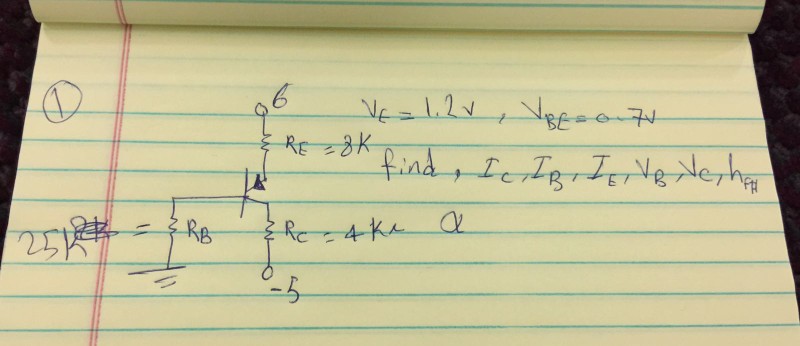 1
6
V_E = 1.2V , V_BE = 0.7V
R_E = 3K
find , I_C, I_B, I_E, V_B, V_C,
25K = R_B
R_C = 4K α
-5